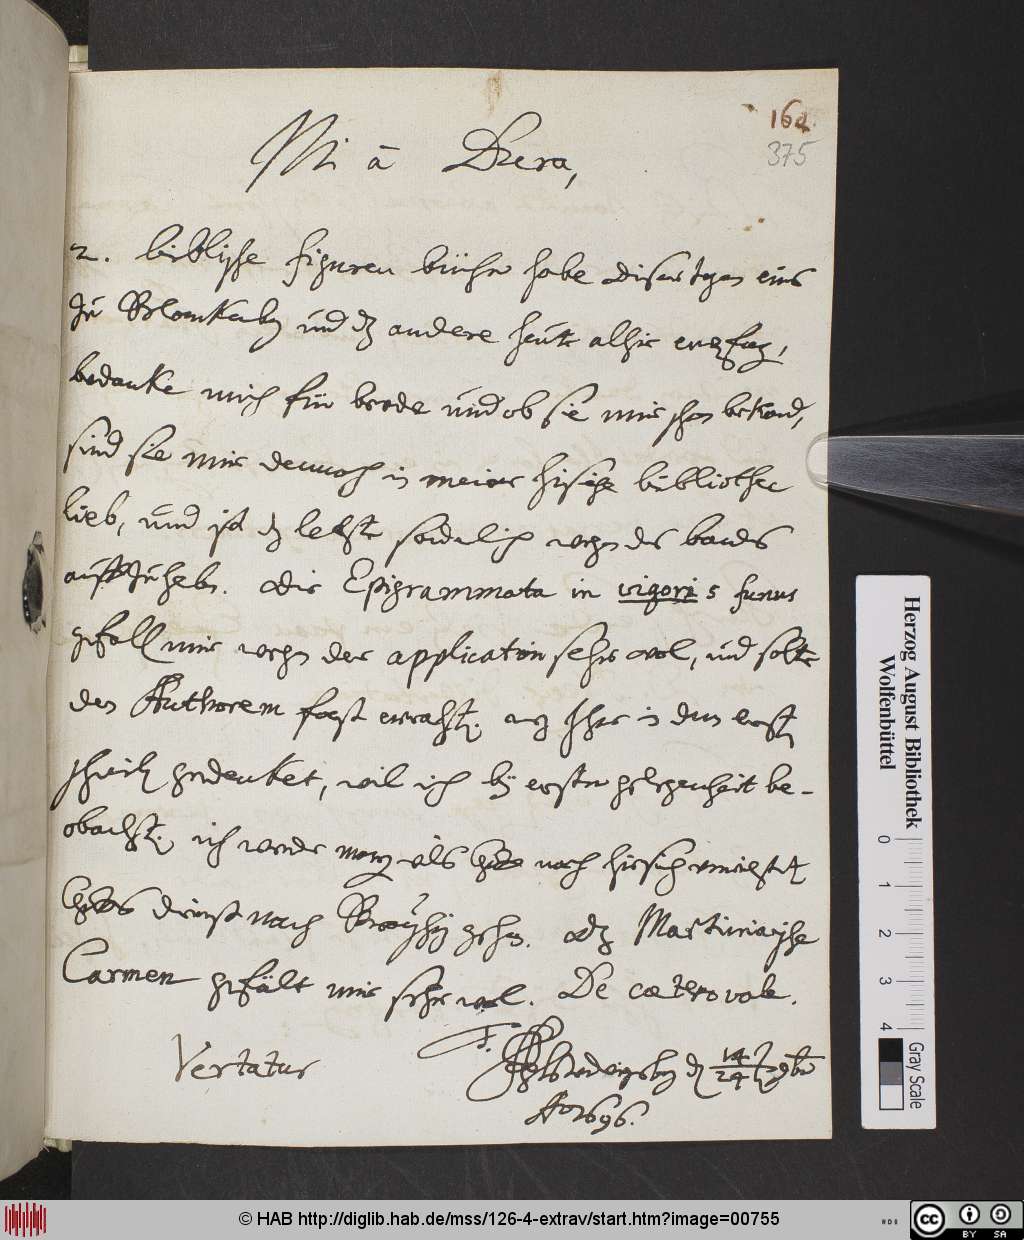 162.
375
Mi â Dera,
2. biblische figuren bücher habe diser tagen eins
zu Blankenbg und dz andere heute alhie empfag,
bedanke mich für beede und ob sie mir schon bekand,
sind sie mir dennoch in meiner hisige bibliothec
lieb, und ist dz letste sonderlich wegen des bands
auffzuheben. Die Epigrammata in vigoris funus
gefallen mir wegen der application sehr wol, und solte
den Authorem fast errahten. was Ihr in dem ersten
schreiben gedenket, wil ich bey erster gelegenheit be-
obachten. ich werde morg
dienst nach gehen. Das Martinia
Carmen gefält mir sehr wol. De cætero vale.
Vertatur
den 14/24 9br
Ao 1696.
Herzog August Bibliothek
Wolfenbüttel
0 1 2 3 4
Gray Scale
© HAB http://diglib.hab.de/mss/126-4-extrav/start.htm?image=00755
cc BY SA